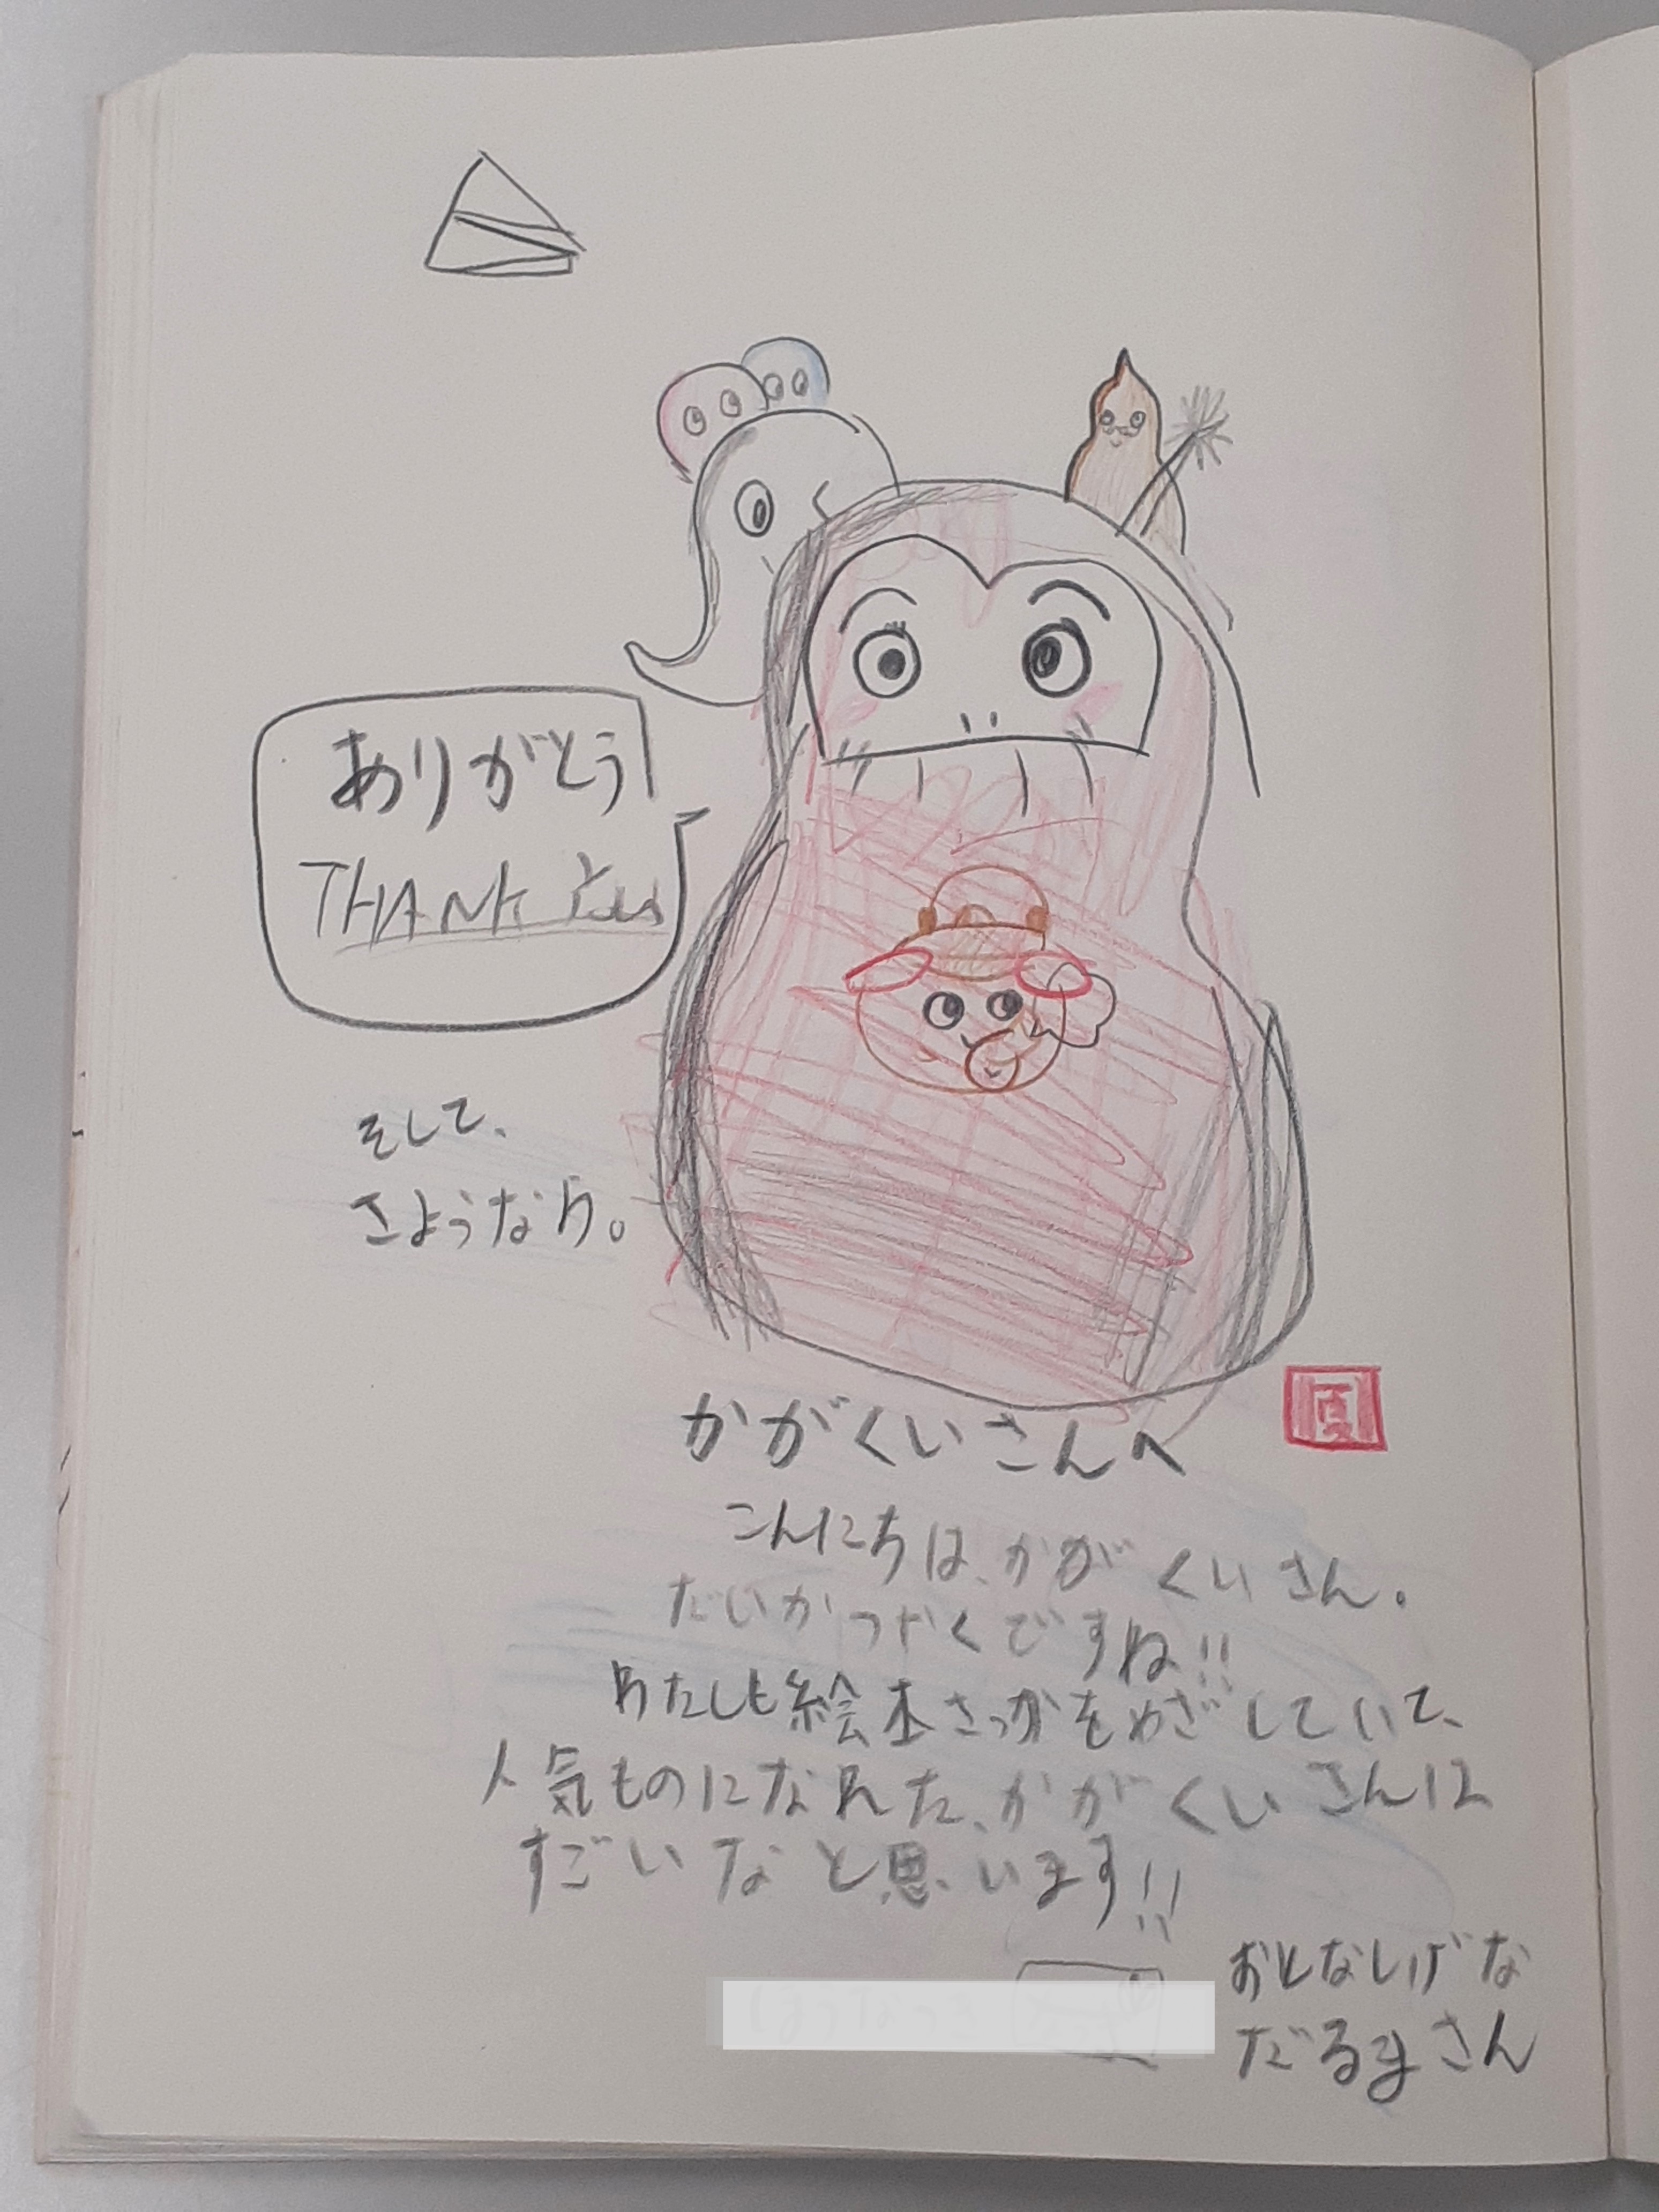 ありがとう
THANK You
そして、
さようなら。
夏
かがくいさんへ
こんにちは、かがくいさん。
だいかつやくですね!!
わたしも絵本さっかをめざしていて、
人気ものになれた、かがくいさんは
すごいなと思います!!
おとなしげな
だるまさん